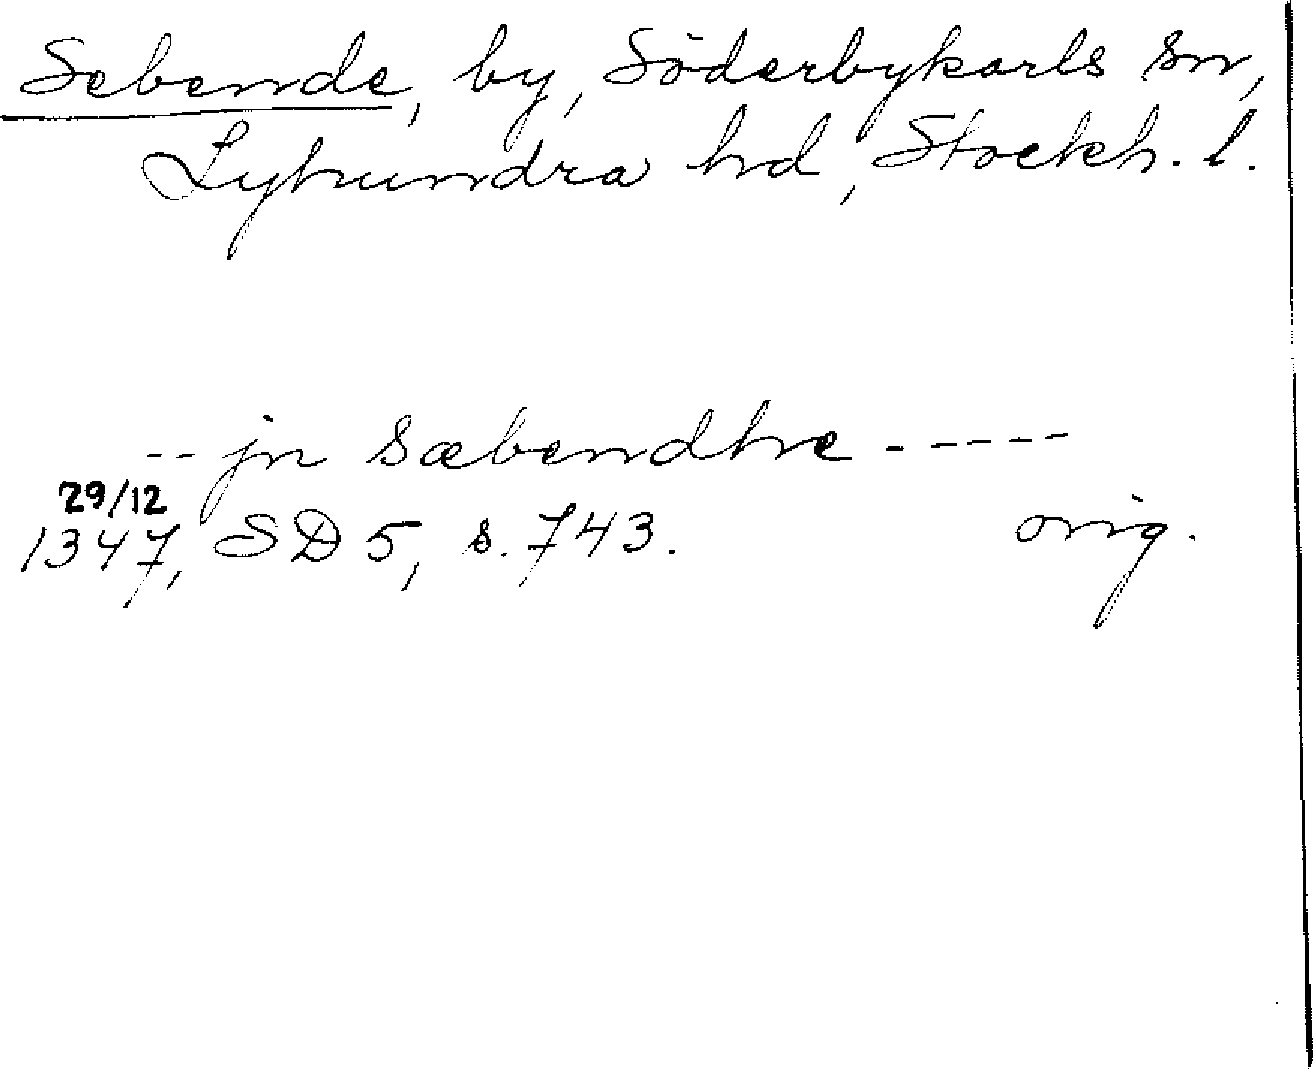 Sebende, by, Söderbykarls sn,
Lyhundra hd, Stockh. l.
-- jn Sæbendhe -----
29/12
1347, SD 5, s. 743. orig.